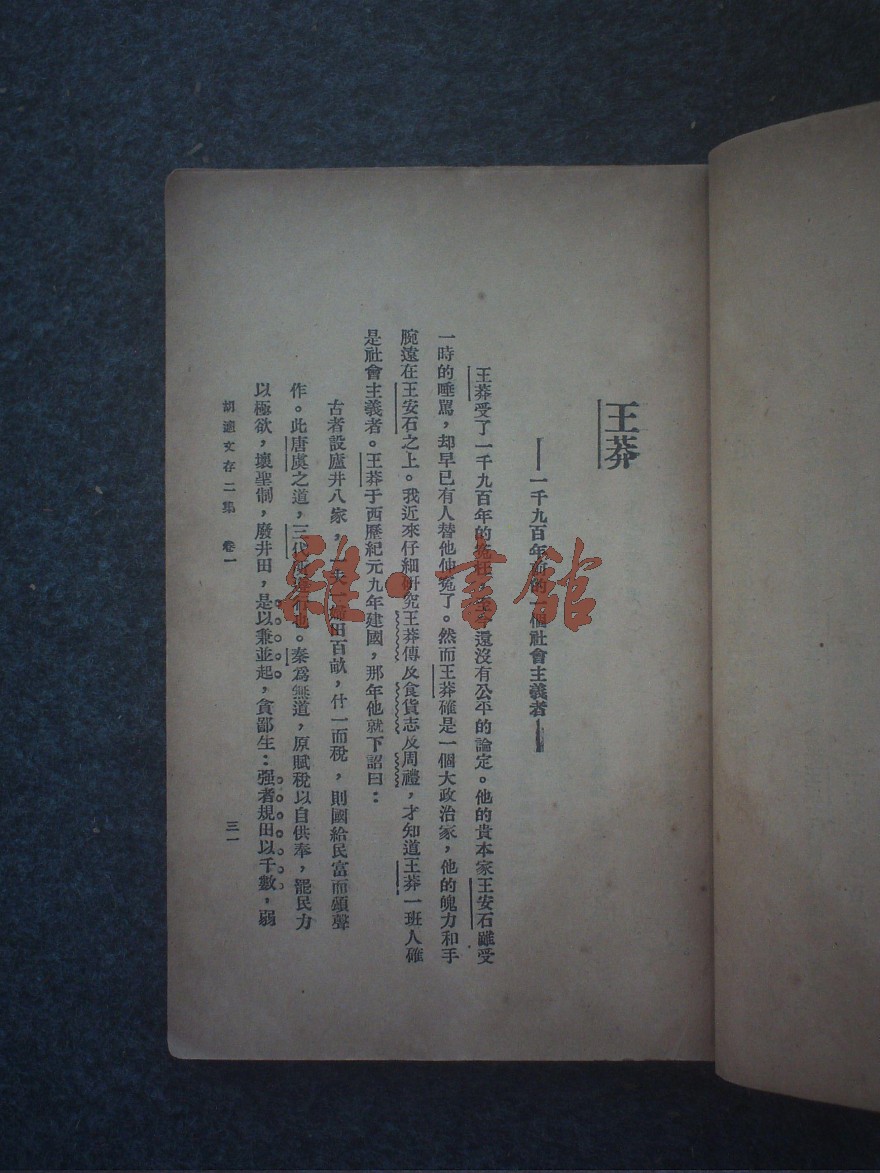 王莽
——一千九百年前的一個社會主義者——
王莽受了一千九百年的冤枉，至今還沒有公平的論定。他的貴本家王安石雖受
一時的唾罵，却早已有人替他伸冤了。然而王莽確是一個大政治家，他的魄力和手
腕遠在王安石之上。我近來仔細研究王莽傳及食貨志及周禮，才知道王莽一班人確
是社會主義者。王莽于西歷紀元九年建國，那年他就下詔曰：
古者設廬井八家，一夫一婦田百畝，什一而稅，則國給民富而頌聲
作。此唐虞之道，三代所遵行也。秦爲無道，原賦稅以自供奉，罷民力
以極欲，壞聖制，廢井田，是以兼並起，貪鄙生：强者規田以千數，弱
胡適文存二集 卷一
三一
雜·書館